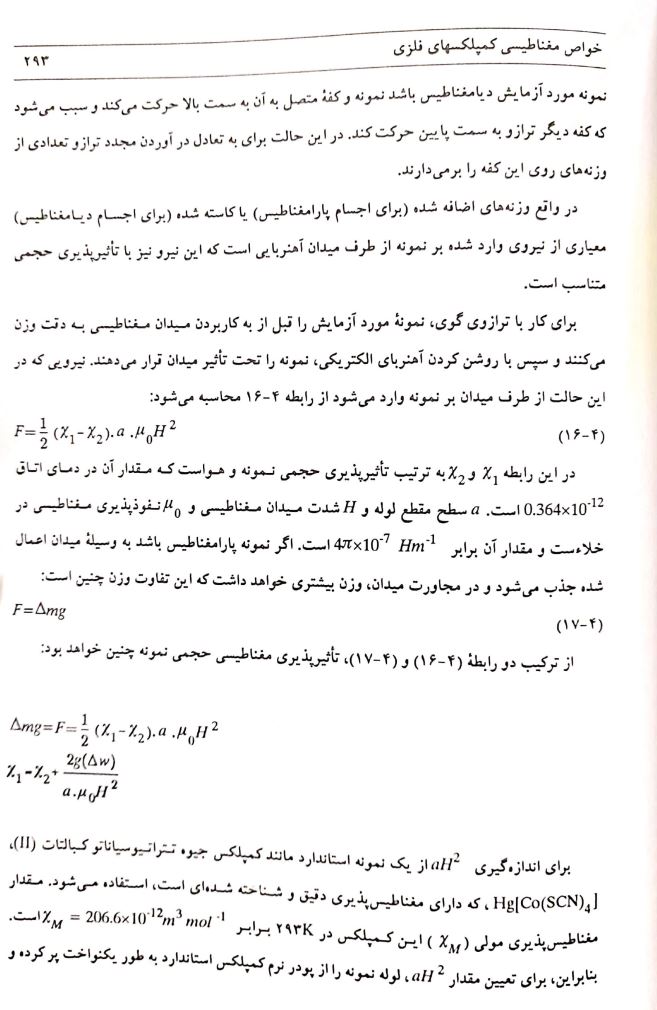 خواص مغناطیسی کمپلکسهای فلزی
۲۹۳
نمونه مورد آزمایش دیامغناطیس باشد نمونه و کفهٔ متصل به آن به سمت بالا حرکت می‌کند و سبب می‌شود
که کفه دیگر ترازو به سمت پایین حرکت کند. در این حالت برای به تعادل در آوردن مجدد ترازو تعدادی از
وزنه‌های روی این کفه را برمی‌دارند.
در واقع وزنه‌های اضافه شده (برای اجسام پارامغناطیس) یا کاسته شده (برای اجسام دیامغناطیس)
معیاری از نیروی وارد شده بر نمونه از طرف میدان آهنربایی است که این نیرو نیز با تأثیرپذیری حجمی
متناسب است.
برای کار با ترازوی گوی، نمونهٔ مورد آزمایش را قبل از به کاربردن میدان مغناطیسی به دقت وزن
می‌کنند و سپس با روشن کردن آهنربای الکتریکی، نمونه را تحت تأثیر میدان قرار می‌دهند. نیرویی که در
این حالت از طرف میدان بر نمونه وارد می‌شود از رابطه ۴-۱۶ محاسبه می‌شود:
F=½ (χ₁-χ₂).a .μ₀H² (۱۶-۴)
در این رابطه χ₁ و χ₂ به ترتیب تأثیرپذیری حجمی نمونه و هواست که مقدار آن در دمای اتاق
0.364×10⁻¹² است. a سطح مقطع لوله و H شدت میدان مغناطیسی و μ₀ نفوذپذیری مغناطیسی در
خلاءست و مقدار آن برابر 4π×10⁻⁷ Hm⁻¹ است. اگر نمونه پارامغناطیس باشد به وسیلهٔ میدان اعمال
شده جذب می‌شود و در مجاورت میدان، وزن بیشتری خواهد داشت که این تفاوت وزن چنین است:
F=Δmg (۱۷-۴)
از ترکیب دو رابطهٔ (۴-۱۶) و (۴-۱۷)، تأثیرپذیری مغناطیسی حجمی نمونه چنین خواهد بود:
Δmg=F=½ (χ₁-χ₂).a .μ₀H²
χ₁=χ₂+ 2g(Δw)/a.μ₀H²
برای اندازه‌گیری aH² از یک نمونه استاندارد مانند کمپلکس جیوه تتراتیوسیاناتو کبالتات (II)،
Hg[Co(SCN)₄]، که دارای مغناطیس‌پذیری دقیق و شناخته شده‌ای است، استفاده می‌شود. مقدار
مغناطیس‌پذیری مولی (χM) این کمپلکس در ۲۹۳K برابر χM = 206.6×10⁻¹²m³ mol⁻¹ است.
بنابراین، برای تعیین مقدار aH²، لوله نمونه را از پودر نرم کمپلکس استاندارد به طور یکنواخت پر کرده و